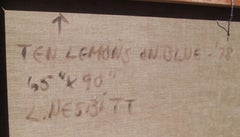 TEN LEMONS ON BLUE - '78
65" x 90"
L. NESBITT